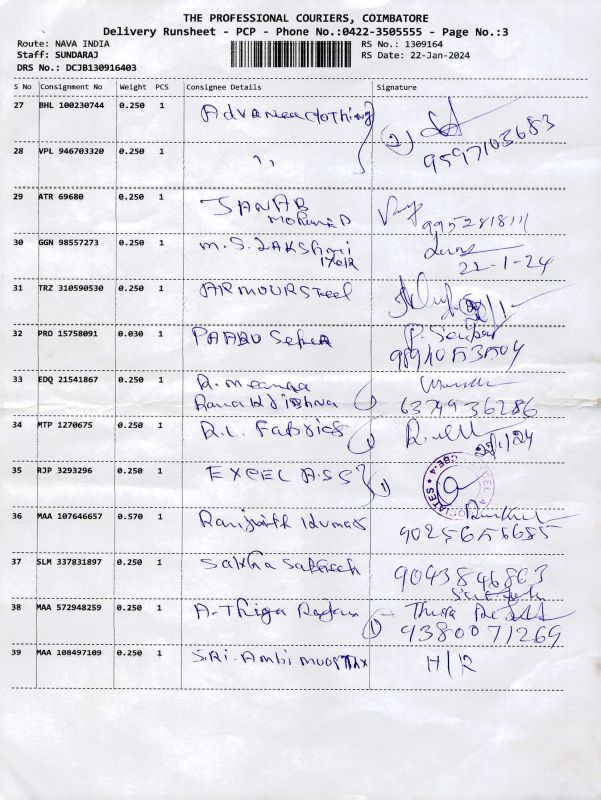 THE PROFESSIONAL COURIERS, COIMBATORE
Delivery Runsheet - PCP - Phone No.:0422-3505555 - Page No.:3
Route: NAVA INDIA
RS No.: 1309164
Staff: SUNDARAJ
RS Date: 22-Jan-2024
DRS No.: DCJB130916403
S No Consignment No Weight PCS Consignee Details Signature
27 BHL 100230744 0.250 1
2)
9597103683
28 VPL 946703320 0.250 1 ,,
29 ATR 69680 0.250 1 JANAB
9952818111
30 GGN 98557273 0.250 1 M.S. LAKSHMI
22-1-24
31 TRZ 310590530 0.250 1 ARMOUR Steel
32 PRO 15758091 0.030 1
33 EDQ 21541867 0.250 1 R. Meanga
6379936286
34 MTP 1270675 0.250 1 R.L. Fabrics 1)
35 RJP 3293296 0.250 1 EXCEL ASS 1)
36 MAA 107646657 0.570 1 Ranjith Kumar
37 SLM 337831897 0.250 1
9043846863
38 MAA 572948259 0.250 1 1)
9380071269
39 MAA 108497109 0.250 1 SRI. Ambi H/R